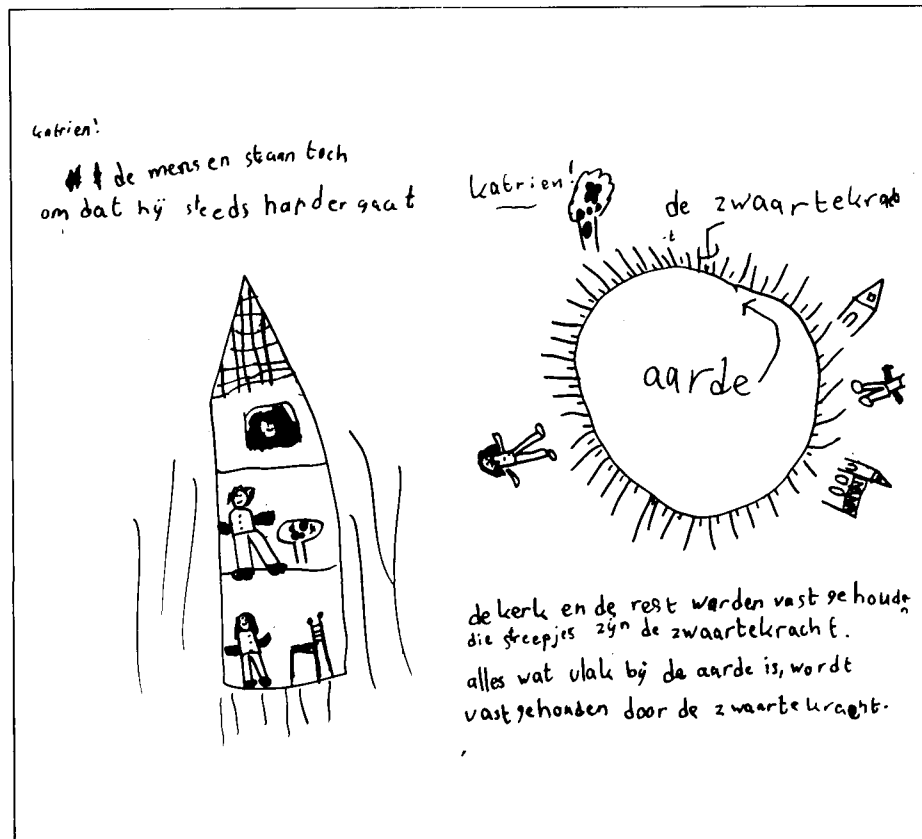 katrien!
de mensen staan toch
om dat hij steeds harder gaat
katrien!
de zwaartekrach
t
aarde
de kerk en de rest worden vast gehouden
die streepjes zijn de zwaartekracht.
alles wat vlak bij de aarde is, wordt
vast gehouden door de zwaartekracht.